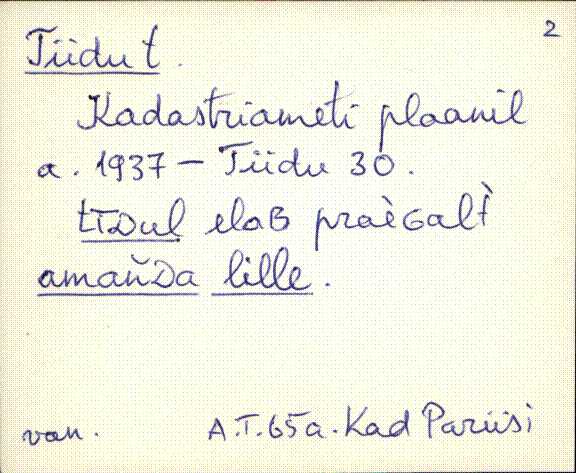 2
Tiidu t.
Kadastriameti plaanil
a. 1937 – Tiidu 30.
tīᴅul elaʙ praèɢalt̀
amaňᴅa lille.
van. A.T. 65a. Kad Pariisi